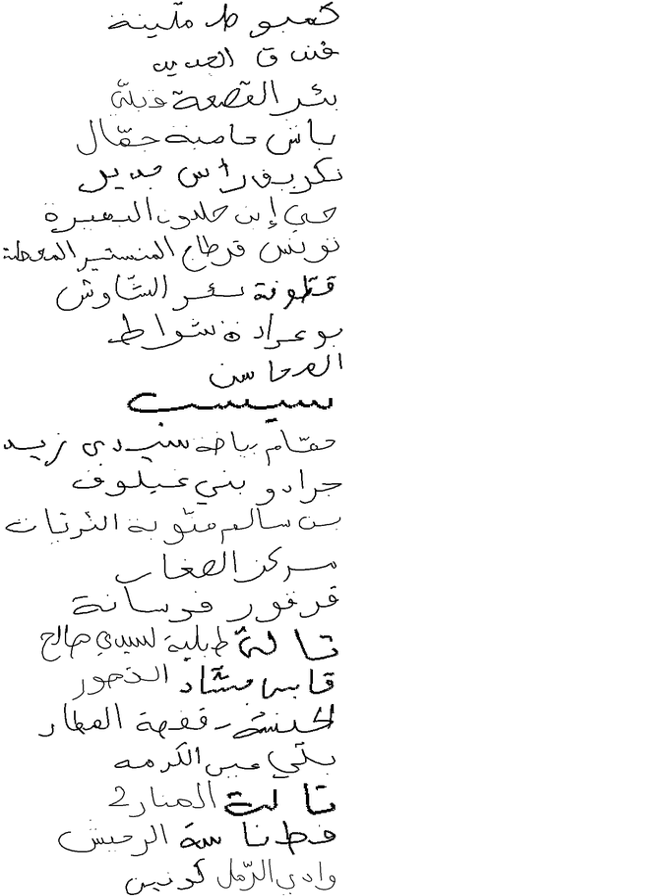 كمبوط ملّينة
فندق الجديد
بئر القصعة قبلّي
باش حامبة حمّال
نكريف راس جدير
حي إبن خلدون البحيرة
تونس قرطاج المنستير
قطّوفة بئر الشّاوش
بوعرادة شواط
المحاسن
سبسب
حمّام بياضة سيدي زيد
جرادو بني غيلوف
بن سالم منّوبة الثريّات
مركز الصغار
قرقور فرسانة
تالة طبلبة لسيدي صالح
قابس الذحور
قفصة المطار
عين الكرمة
تالة المنار2
فطناسة الرحيش
وادي الرّمل